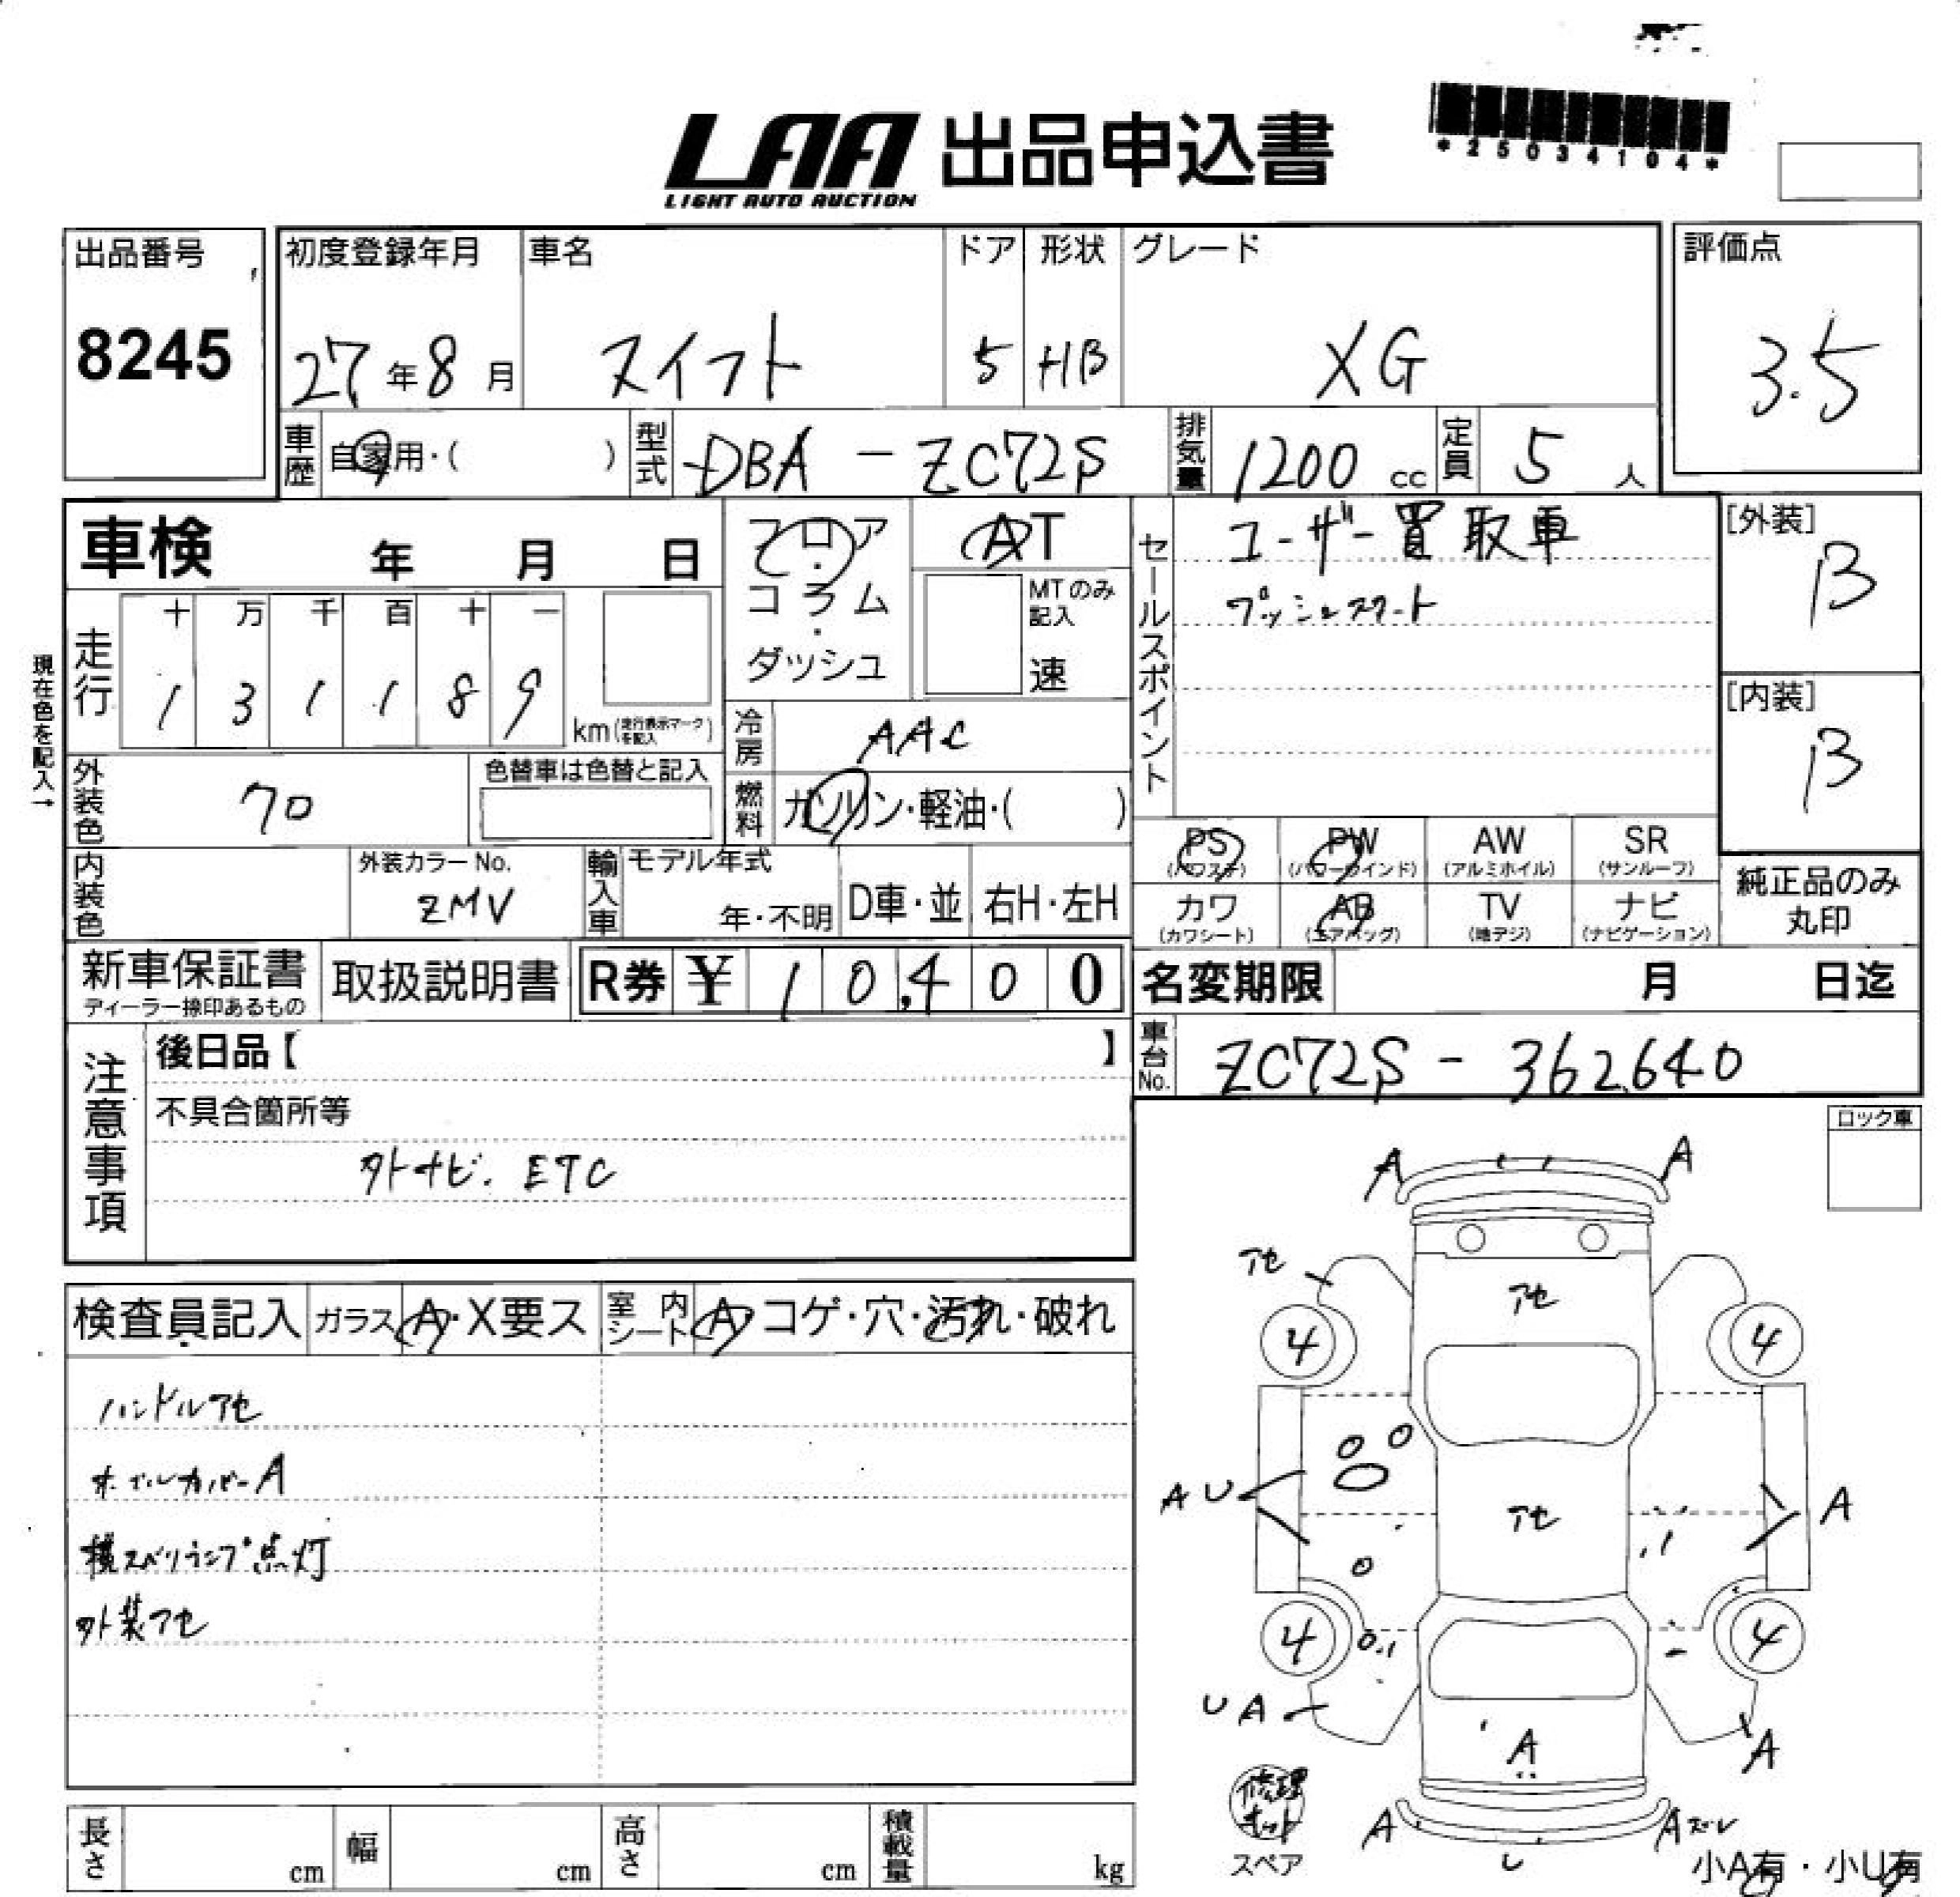 LAA 出品申込書
LIGHT AUTO AUCTION
*25034104*
出品番号
8245
初度登録年月
27年8月
車名
スイフト
ドア
5
形状
HB
グレード
XG
評価点
3.5
車歴
自家用・( )
型式
DBA - ZC72S
排気量
1200 cc
定員
5 人
車検 年 月 日
フロア・コラム・ダッシュ
AT
MTのみ記入
速
セールスポイント
ユーザー買取車
プッシュスタート
[外装]
B
[内装]
B
現在色を記入→
走行
十 万 千 百 十 一
1 3 1 1 8 9
km(走行表示マークを記入)
冷房
AAC
燃料
ガソリン・軽油・( )
外装色
クロ
色替車は色替と記入
内装色
外装カラーNo.
ZMV
輸入車
モデル年式
年・不明
D車・並
右H・左H
PS (パワステ)
PW (パワーウインド)
AW (アルミホイル)
SR (サンルーフ)
カワ (カワシート)
AB (エアバッグ)
TV (地デジ)
ナビ (ナビゲーション)
純正品のみ丸印
新車保証書
ディーラー捺印あるもの
取扱説明書
R券 ¥ 10,400
名変期限 月 日迄
車台No.
ZC72S - 362640
注意事項
後日品【 】
不具合箇所等
外ナビ. ETC
ロック車
検査員記入
ガラス A・X要ス
室内シート A・コゲ・穴・汚れ・破れ
ハンドルアセ
ホイールカバーA
横スベリランプ点灯
外装アセ
A A
アセ
アセ
4 4
A U
アセ
A
4 4
U A
A
A
修理キット
スペア
A
A ズレ
小A有・小U有
長さ cm
幅 cm
高さ cm
積載量 kg